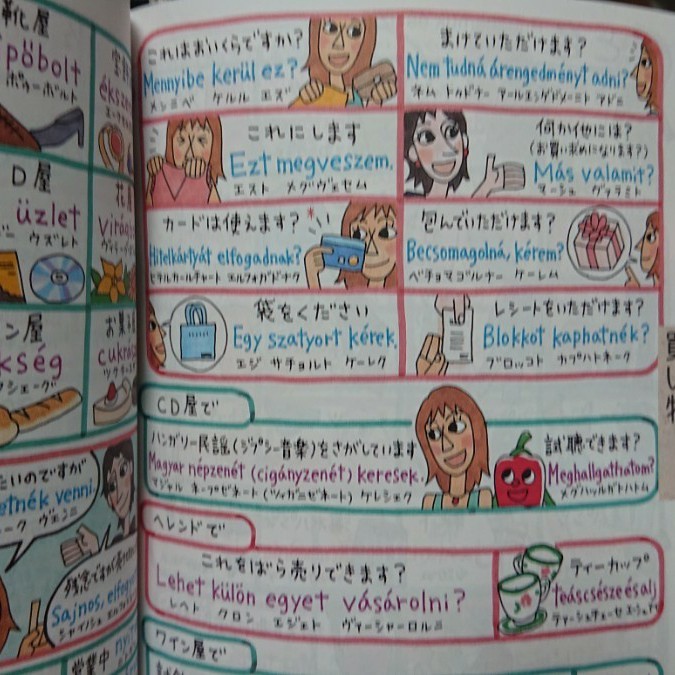 靴屋
pőbolt
ポゥーボルト
D屋
üzlet
ウズレト
ン屋
kség
クシェーグ
éksz
花
Virág
お菓
cukro
たいのですが
etnék venni.
ーク ヴェンニ
残念ですが
Sajnos, elfog
シャイノシュ エルフォ
営業中 ny
これはおいくらですか?
Mennyibe kerül ez?
メンニベ ケルル エズ
まけていただけます?
Nem tudná árengedményt adni?
ネム トゥドナー アールエンゲドメーニト アドニ
これにします
Ezt megveszem.
エスト メグヴェセム
何か他には?
(お買い求めになります?)
Más valamit?
マーシュ ヴァラミト
カードは使えます?
Hitelkártyát elfogadnak?
ヒテルカールチャート エルフォガドナク
包んでいただけます?
Becsomagolná, kérem?
ベチョマゴルナー ケーレム
袋をください
Egy szatyort kérek.
エジ サチョルト ケーレク
レシートをいただけます?
Blokkot kaphatnék?
ブロッコト カプハトネーク
買い物
CD屋で
ハンガリー民謡(ジプシー音楽)をさがしています
Magyar népzenét (cigányzenét) keresek.
マジャル ネープゼネート(ツィガニゼネート) ケレシェク
試聴できます?
Meghallgathatom?
メグハッルガトハトム
ヘレンドで
これをばら売りできます?
Lehet külön egyet vásárolni?
レヘト クロン エジェト ヴァーシャーロルニ
ティーカップ
teáscsésze és alj
ワイン屋で